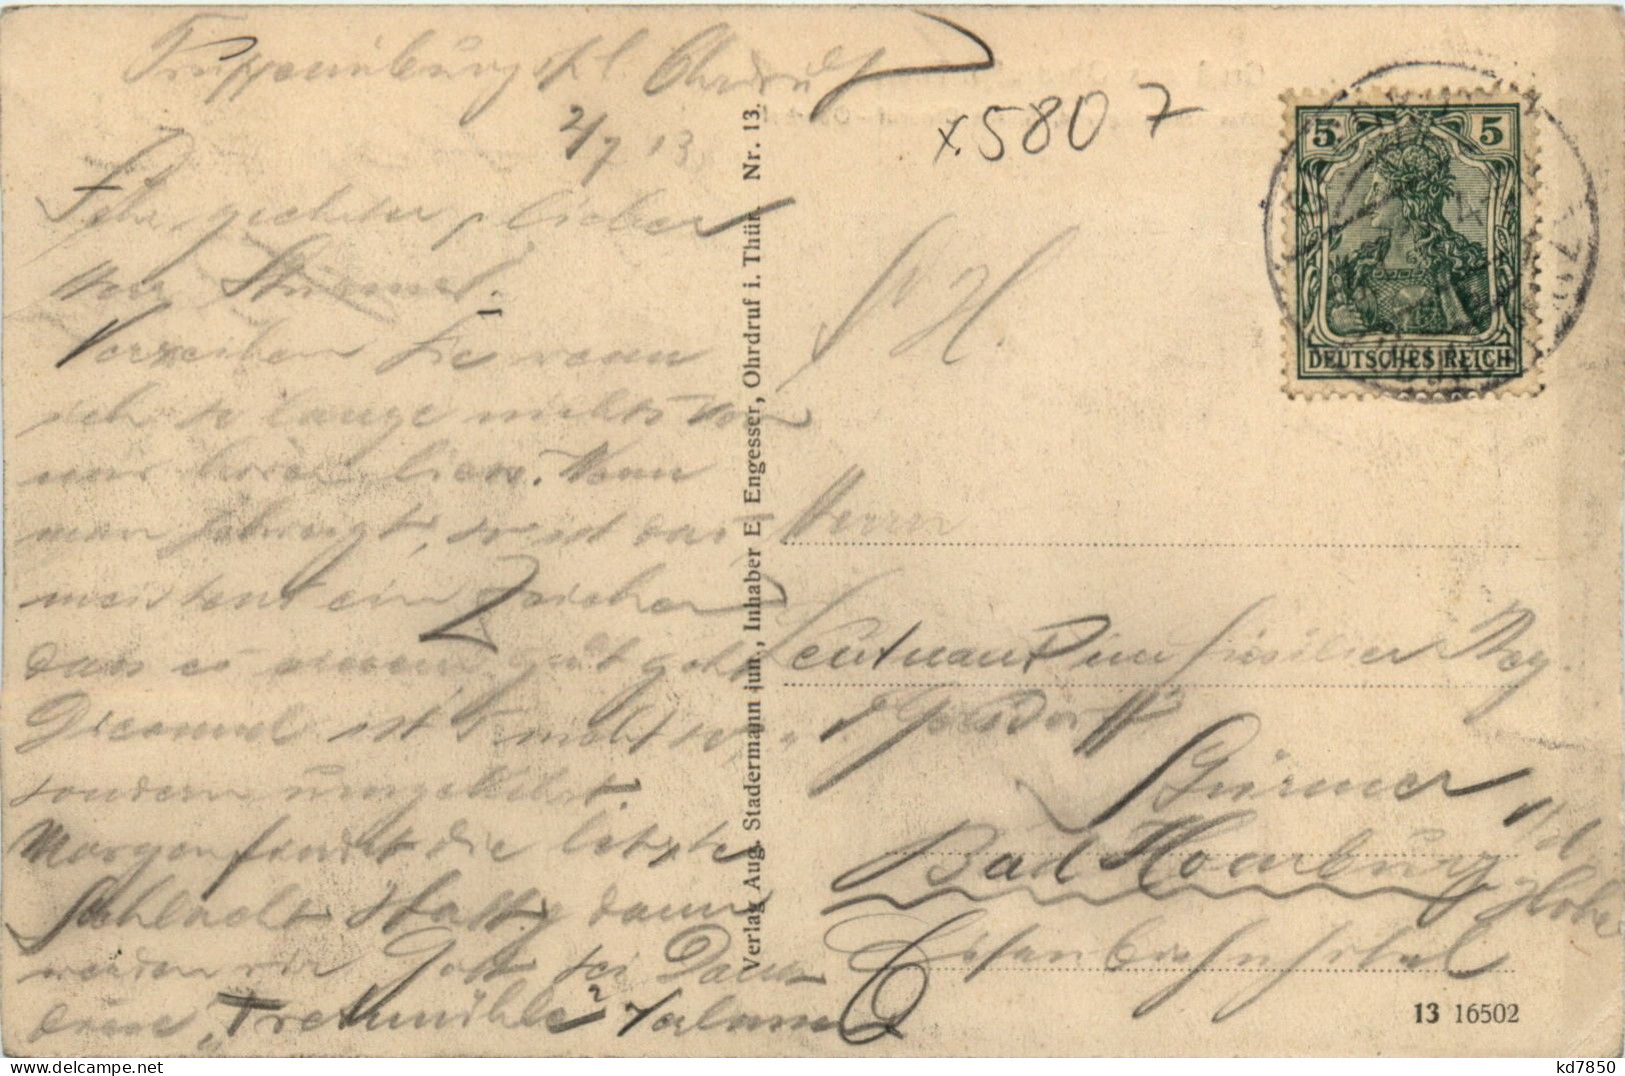 Truppenübungspl. Ohrdruf
2/7 13
Sehr geehrter, lieber
Herr Stürmer!
Verzeihen Sie wenn
ich so lange nichts von
mir hören liess. Wenn
man schweigt, so ist das
meistens ein Zeichen
dass es einem gut geht
Diesmal ist nicht so,
sondern umgekehrt.
Morgen findet die letzte
Schlacht statt, dann
werden wir Gott sei Dank
diese „Tretmühle" verlassen
Verlag Aug. Stadermann jun., Inhaber E Engesser, Ohrdruf i. Thür. Nr. 13.
x5807
5 5
DEUTSCHES REICH
S. H.
Herrn
Leutnant im Füsilier Reg.
v. Gersdorff
Stürmer
Bad Homburg v/d
Höhe
Eisenbahnhotel
13 16502
kd7850